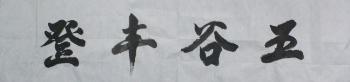 五谷丰登